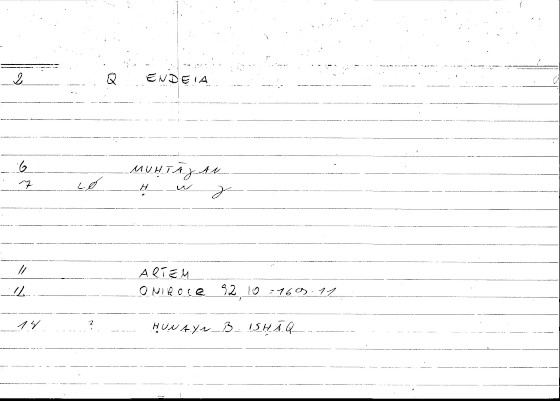 2 Q ENDEIA
6 MUḤTĀǦAN
7 LØ Ḥ W Ǧ
11 ARTEM
12 ONIROCR 92,10 = 169.11
14 ? ḤUNAYN B ISḤĀQ